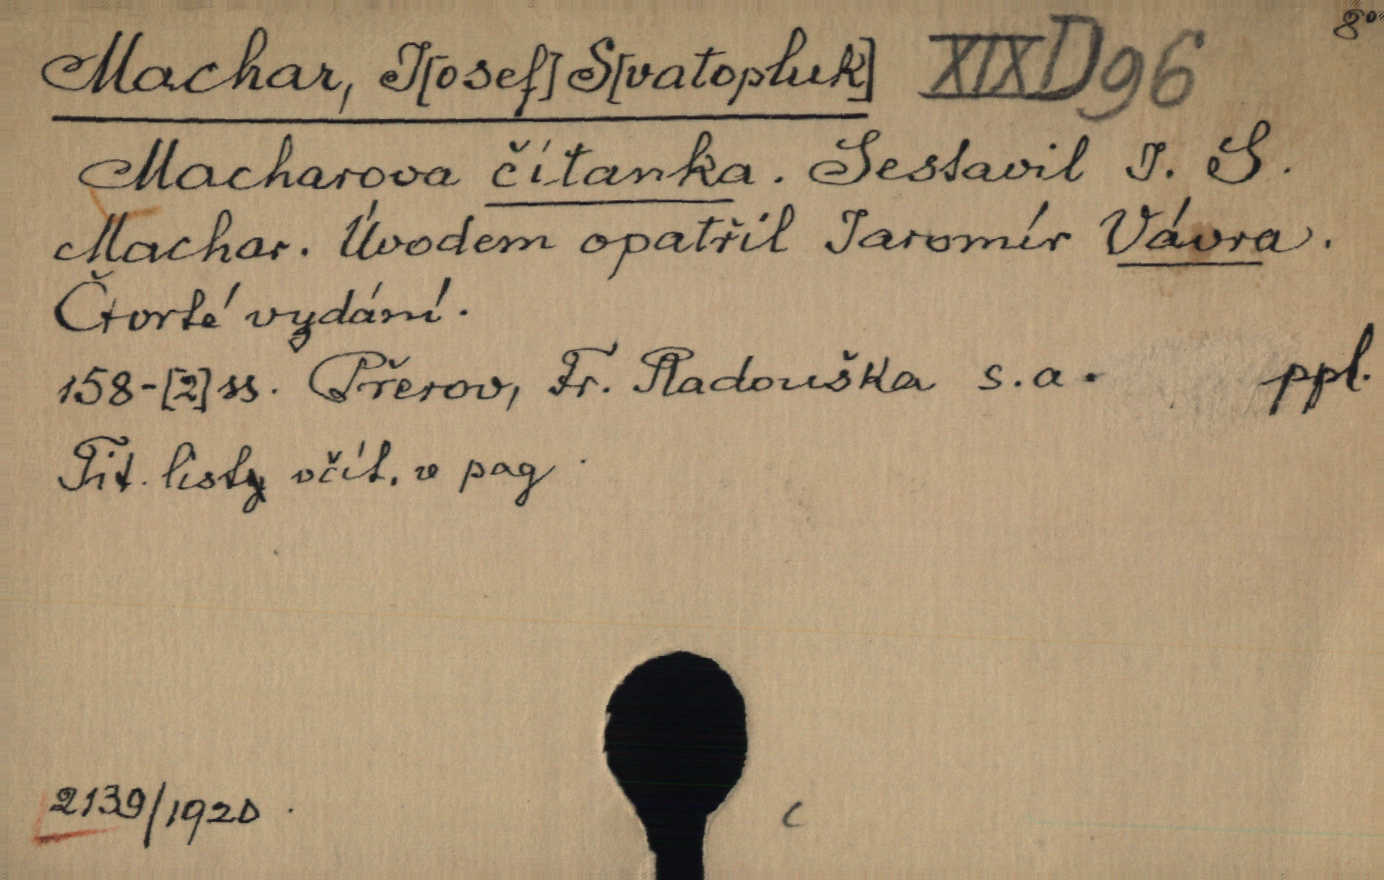 8°
Machar, J[osef] S[vatopluk] XIX D 96
Macharova čítanka. Sestavil J. S.
Machar. Úvodem opatřil Jaromír Vávra.
Čtvrté vydání.
158-[2] ss. Přerov, Fr. Radouška s. a. ppl.
Tit. listy včít. v pag.
2139/1920.
c